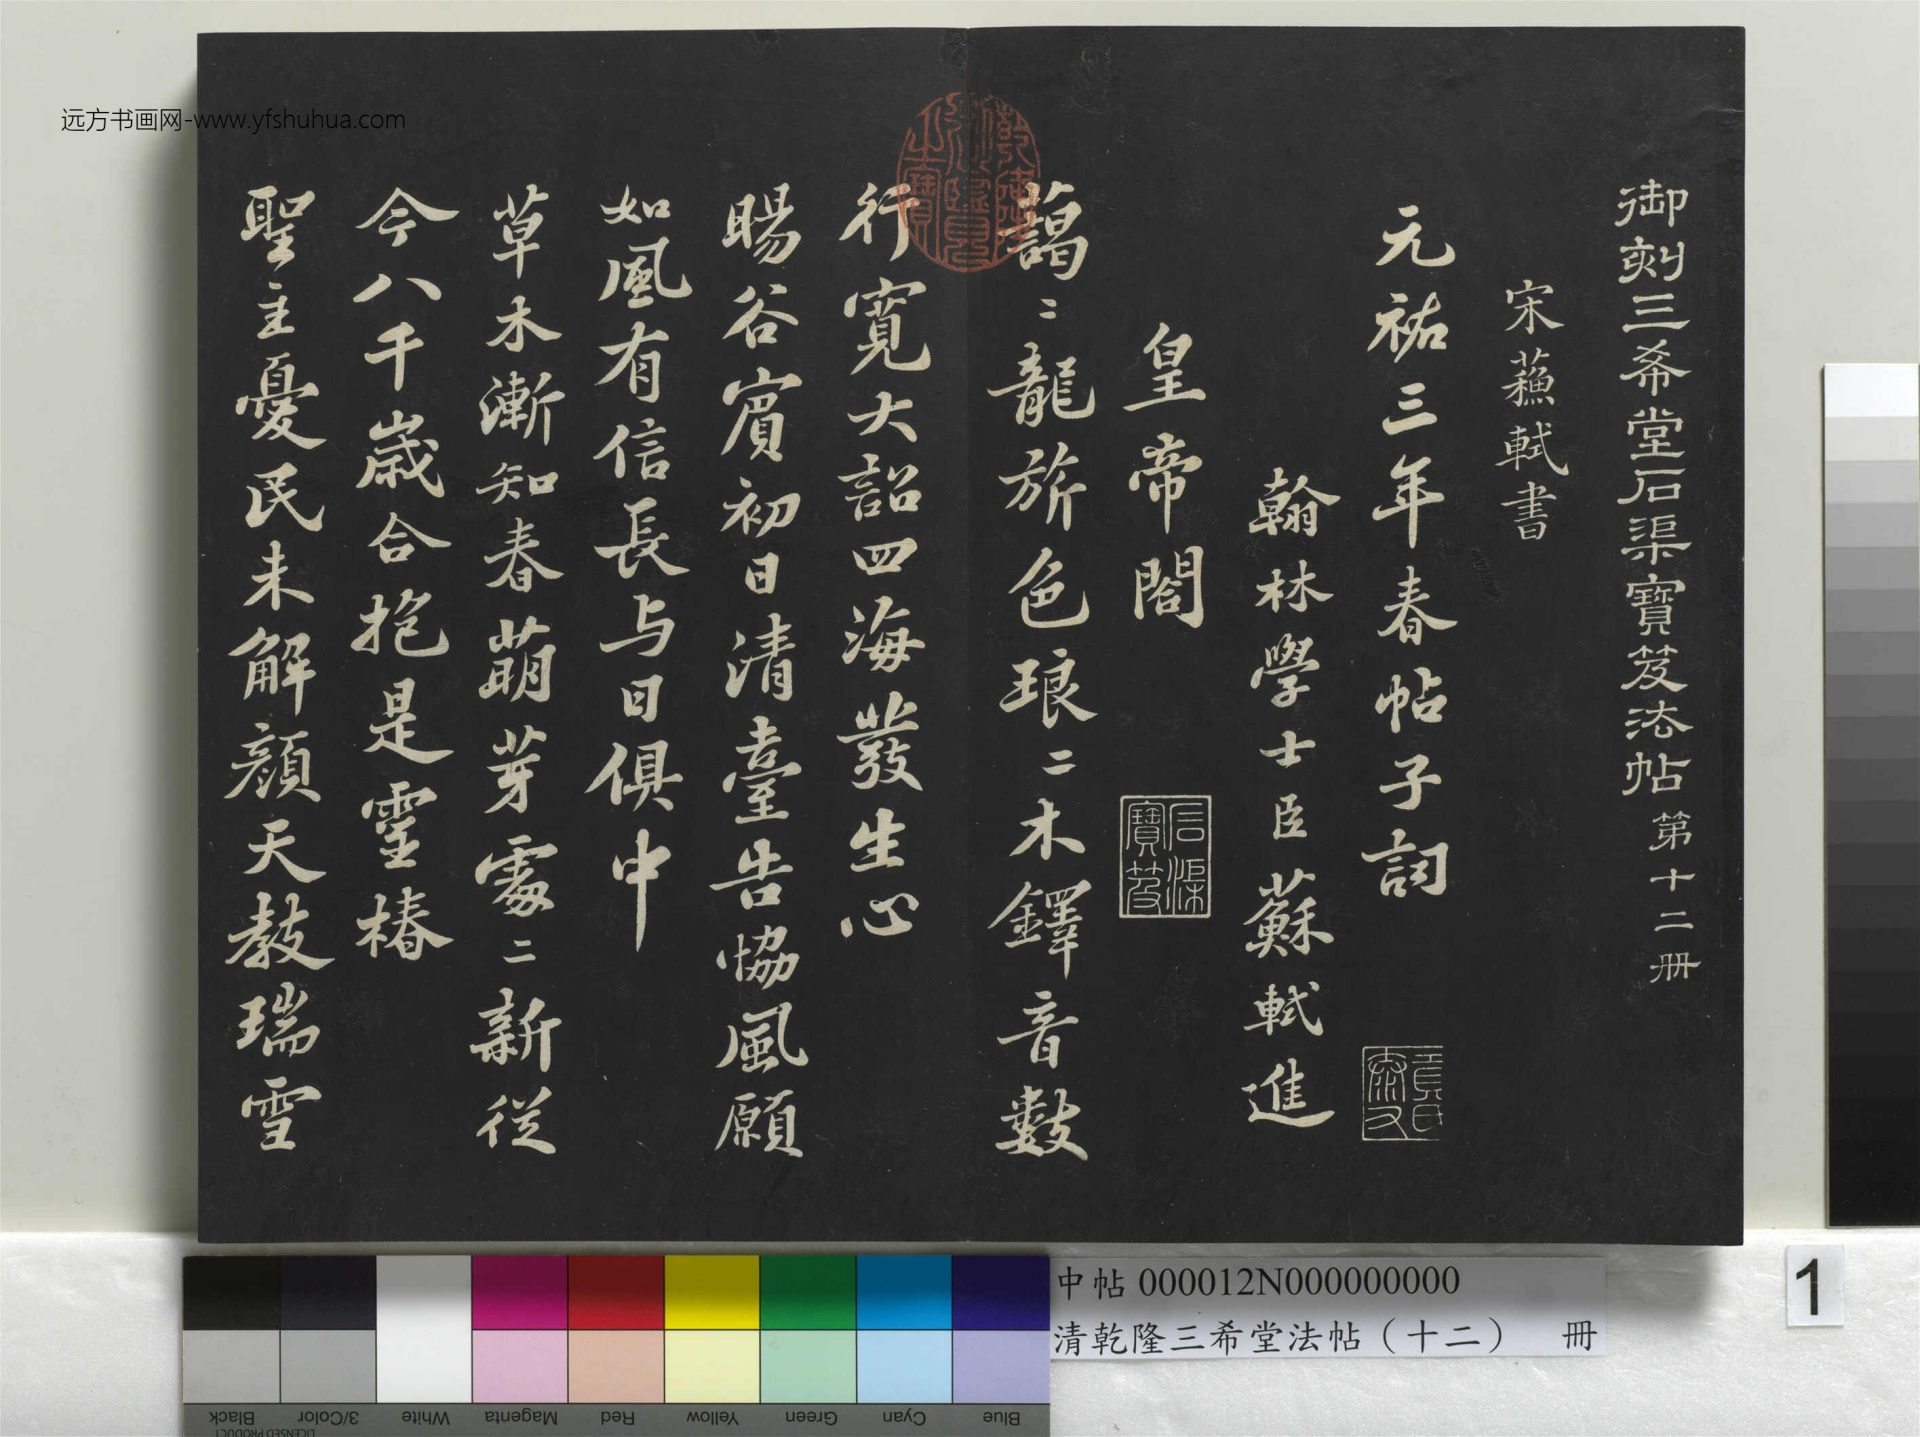 远方书画网-www.yfshuhua.com
御刻三希堂石渠寶笈法帖第十二册
宋蘓軾書
元祐三年春帖子詞
翰林學士臣蘇軾進
皇帝閣
藹〻龍旂色琅〻木鐸音數
行寬大詔四海發生心
暘谷賓初日清臺告協風願
如風有信長与日俱中
草木漸知春萌芽處〻新從
今八千歲合抱是靈椿
聖主憂民未解顔天教瑞雪
石渠寶笈
中帖 000012N000000000
清乾隆三希堂法帖（十二） 冊
1
Black
3/Color
White
Magenta
Red
Yellow
Green
Cyan
Blue
LICENSED PRODUCT